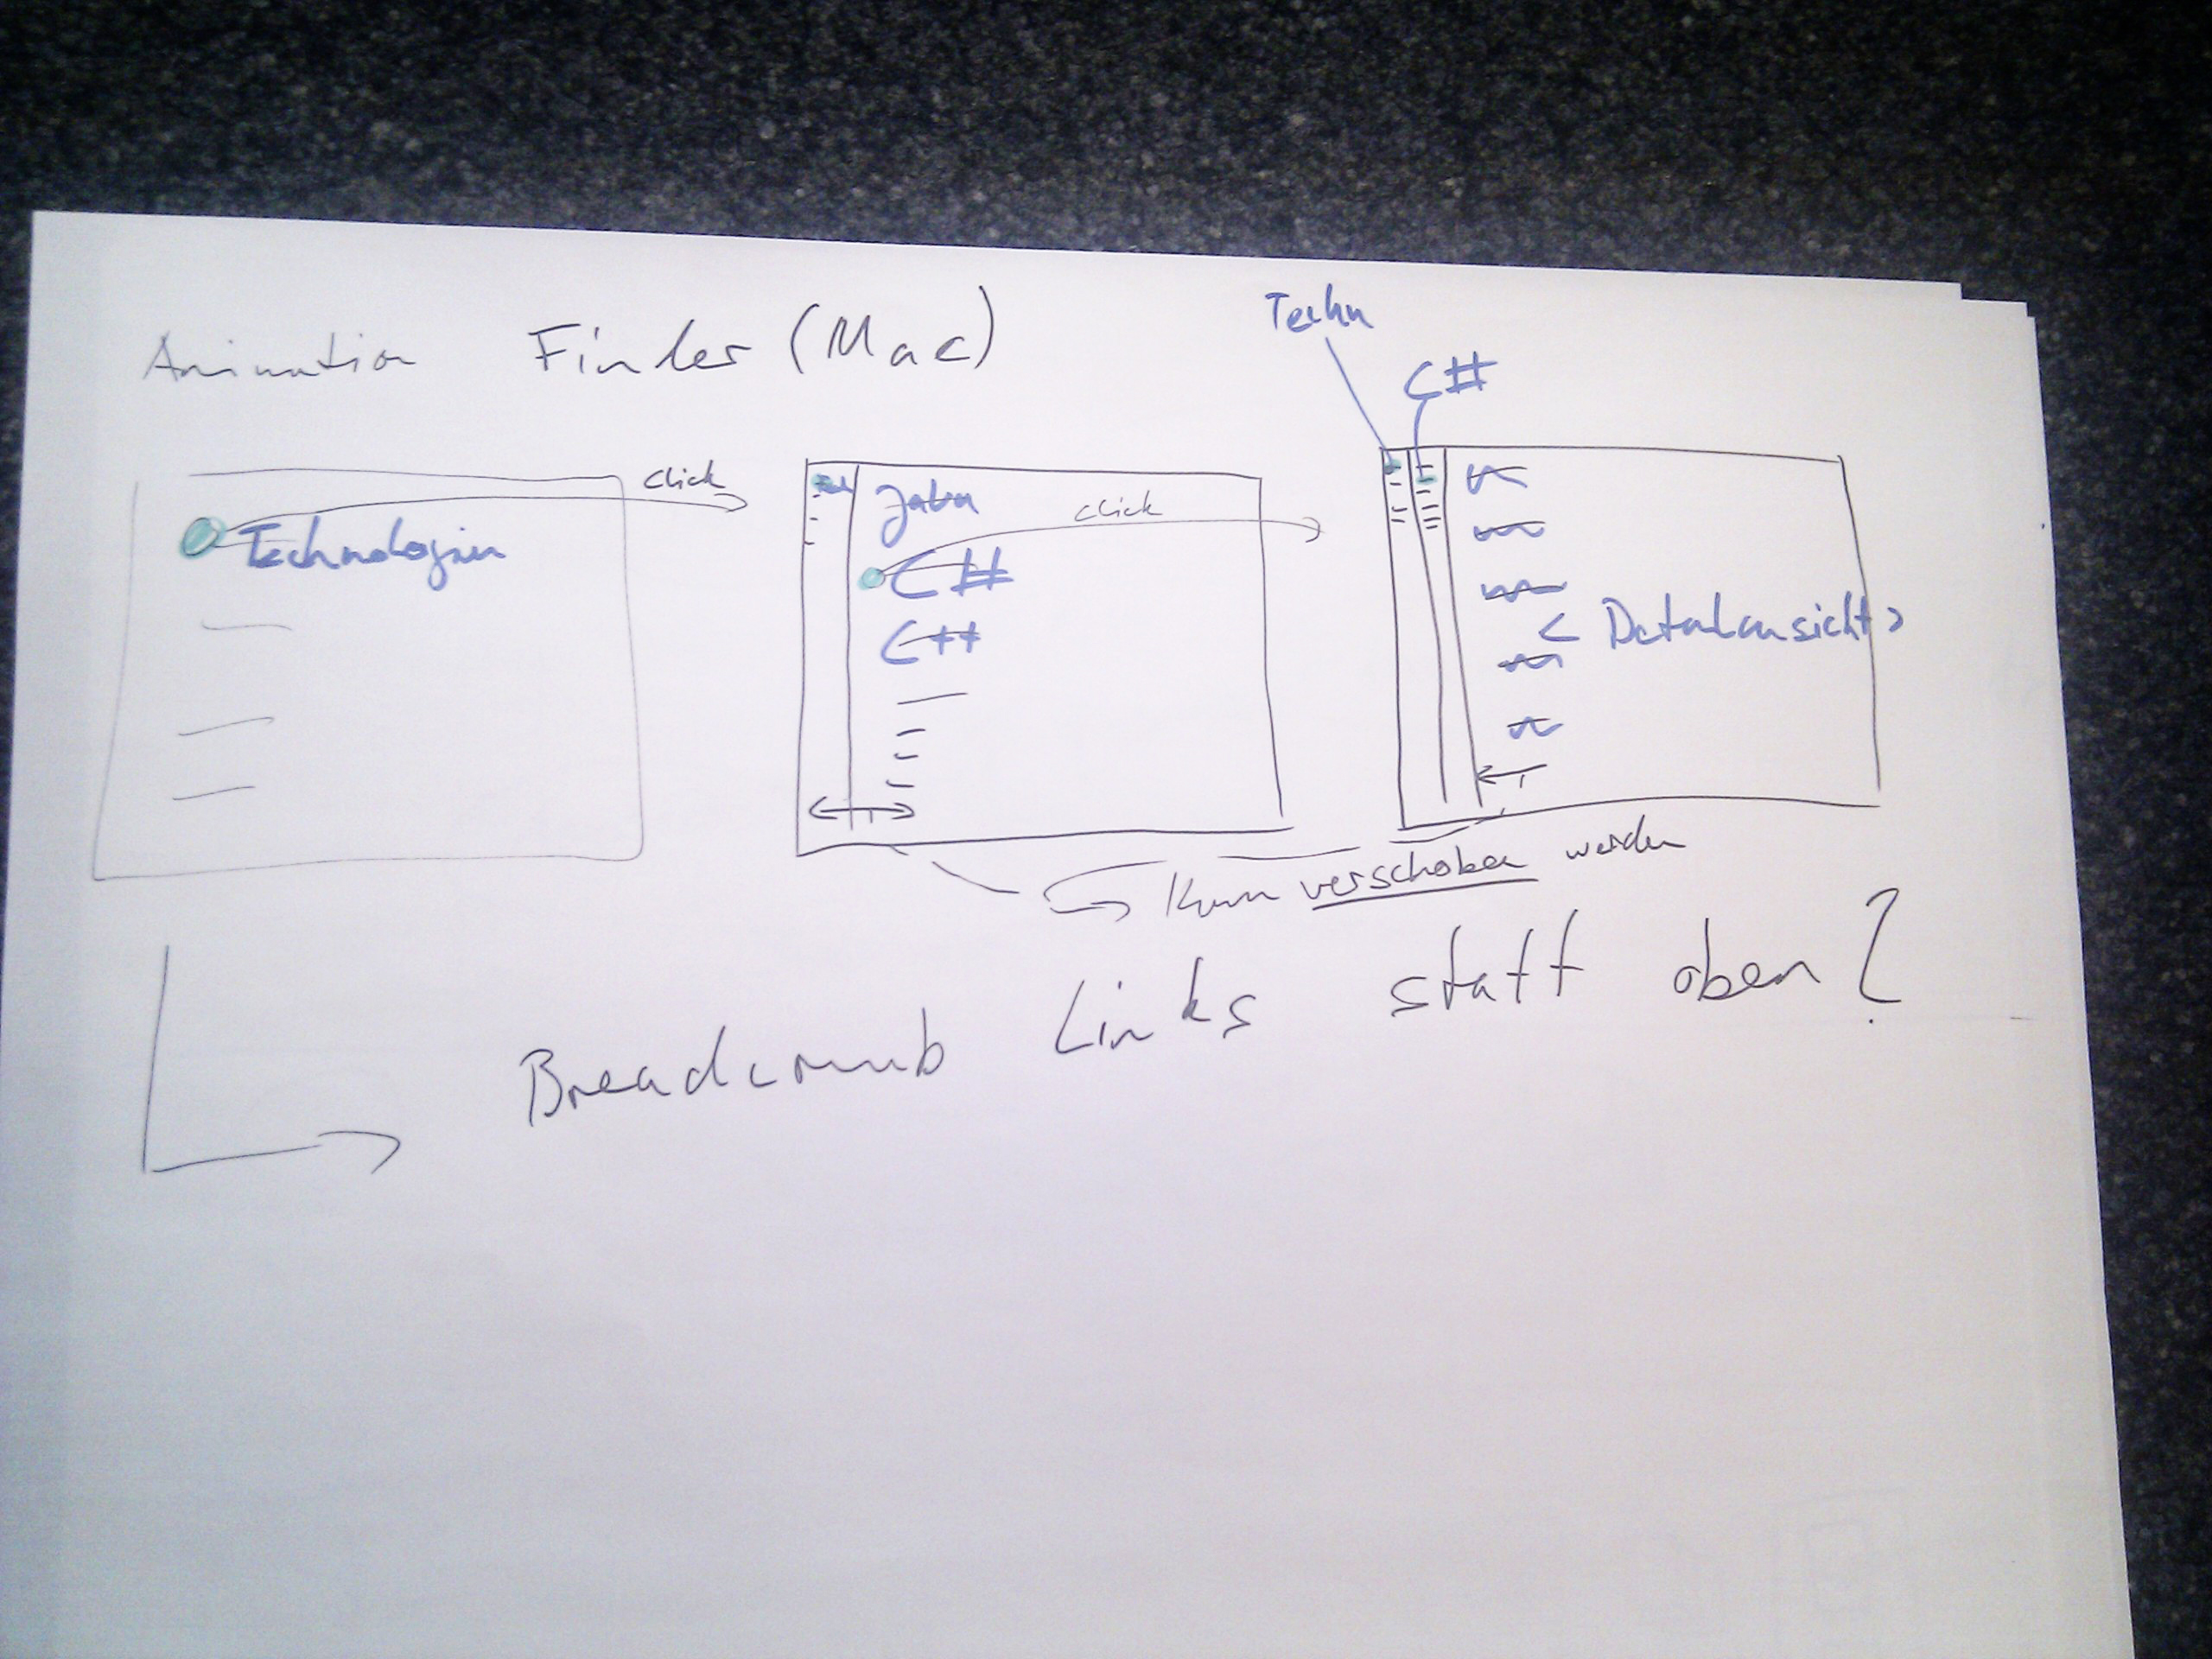 Animation Finder (Mac)
Techn
C#
click
Technologien
Java
click
C#
C++
< Detailansicht >
Kann verschoben werden
Breadcrumb Links statt oben?